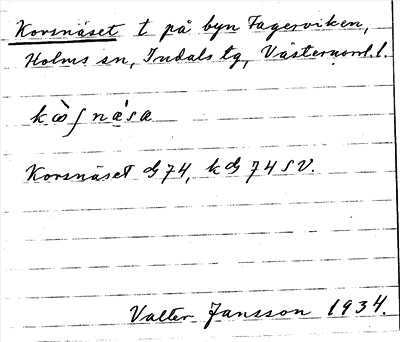 Korsnäset t på byn Fagerviken,
Holms sn, Indals tg, Västernorrl. l.
Korsnäset G 74, k G 74 SV.
Valter Jansson 1934.